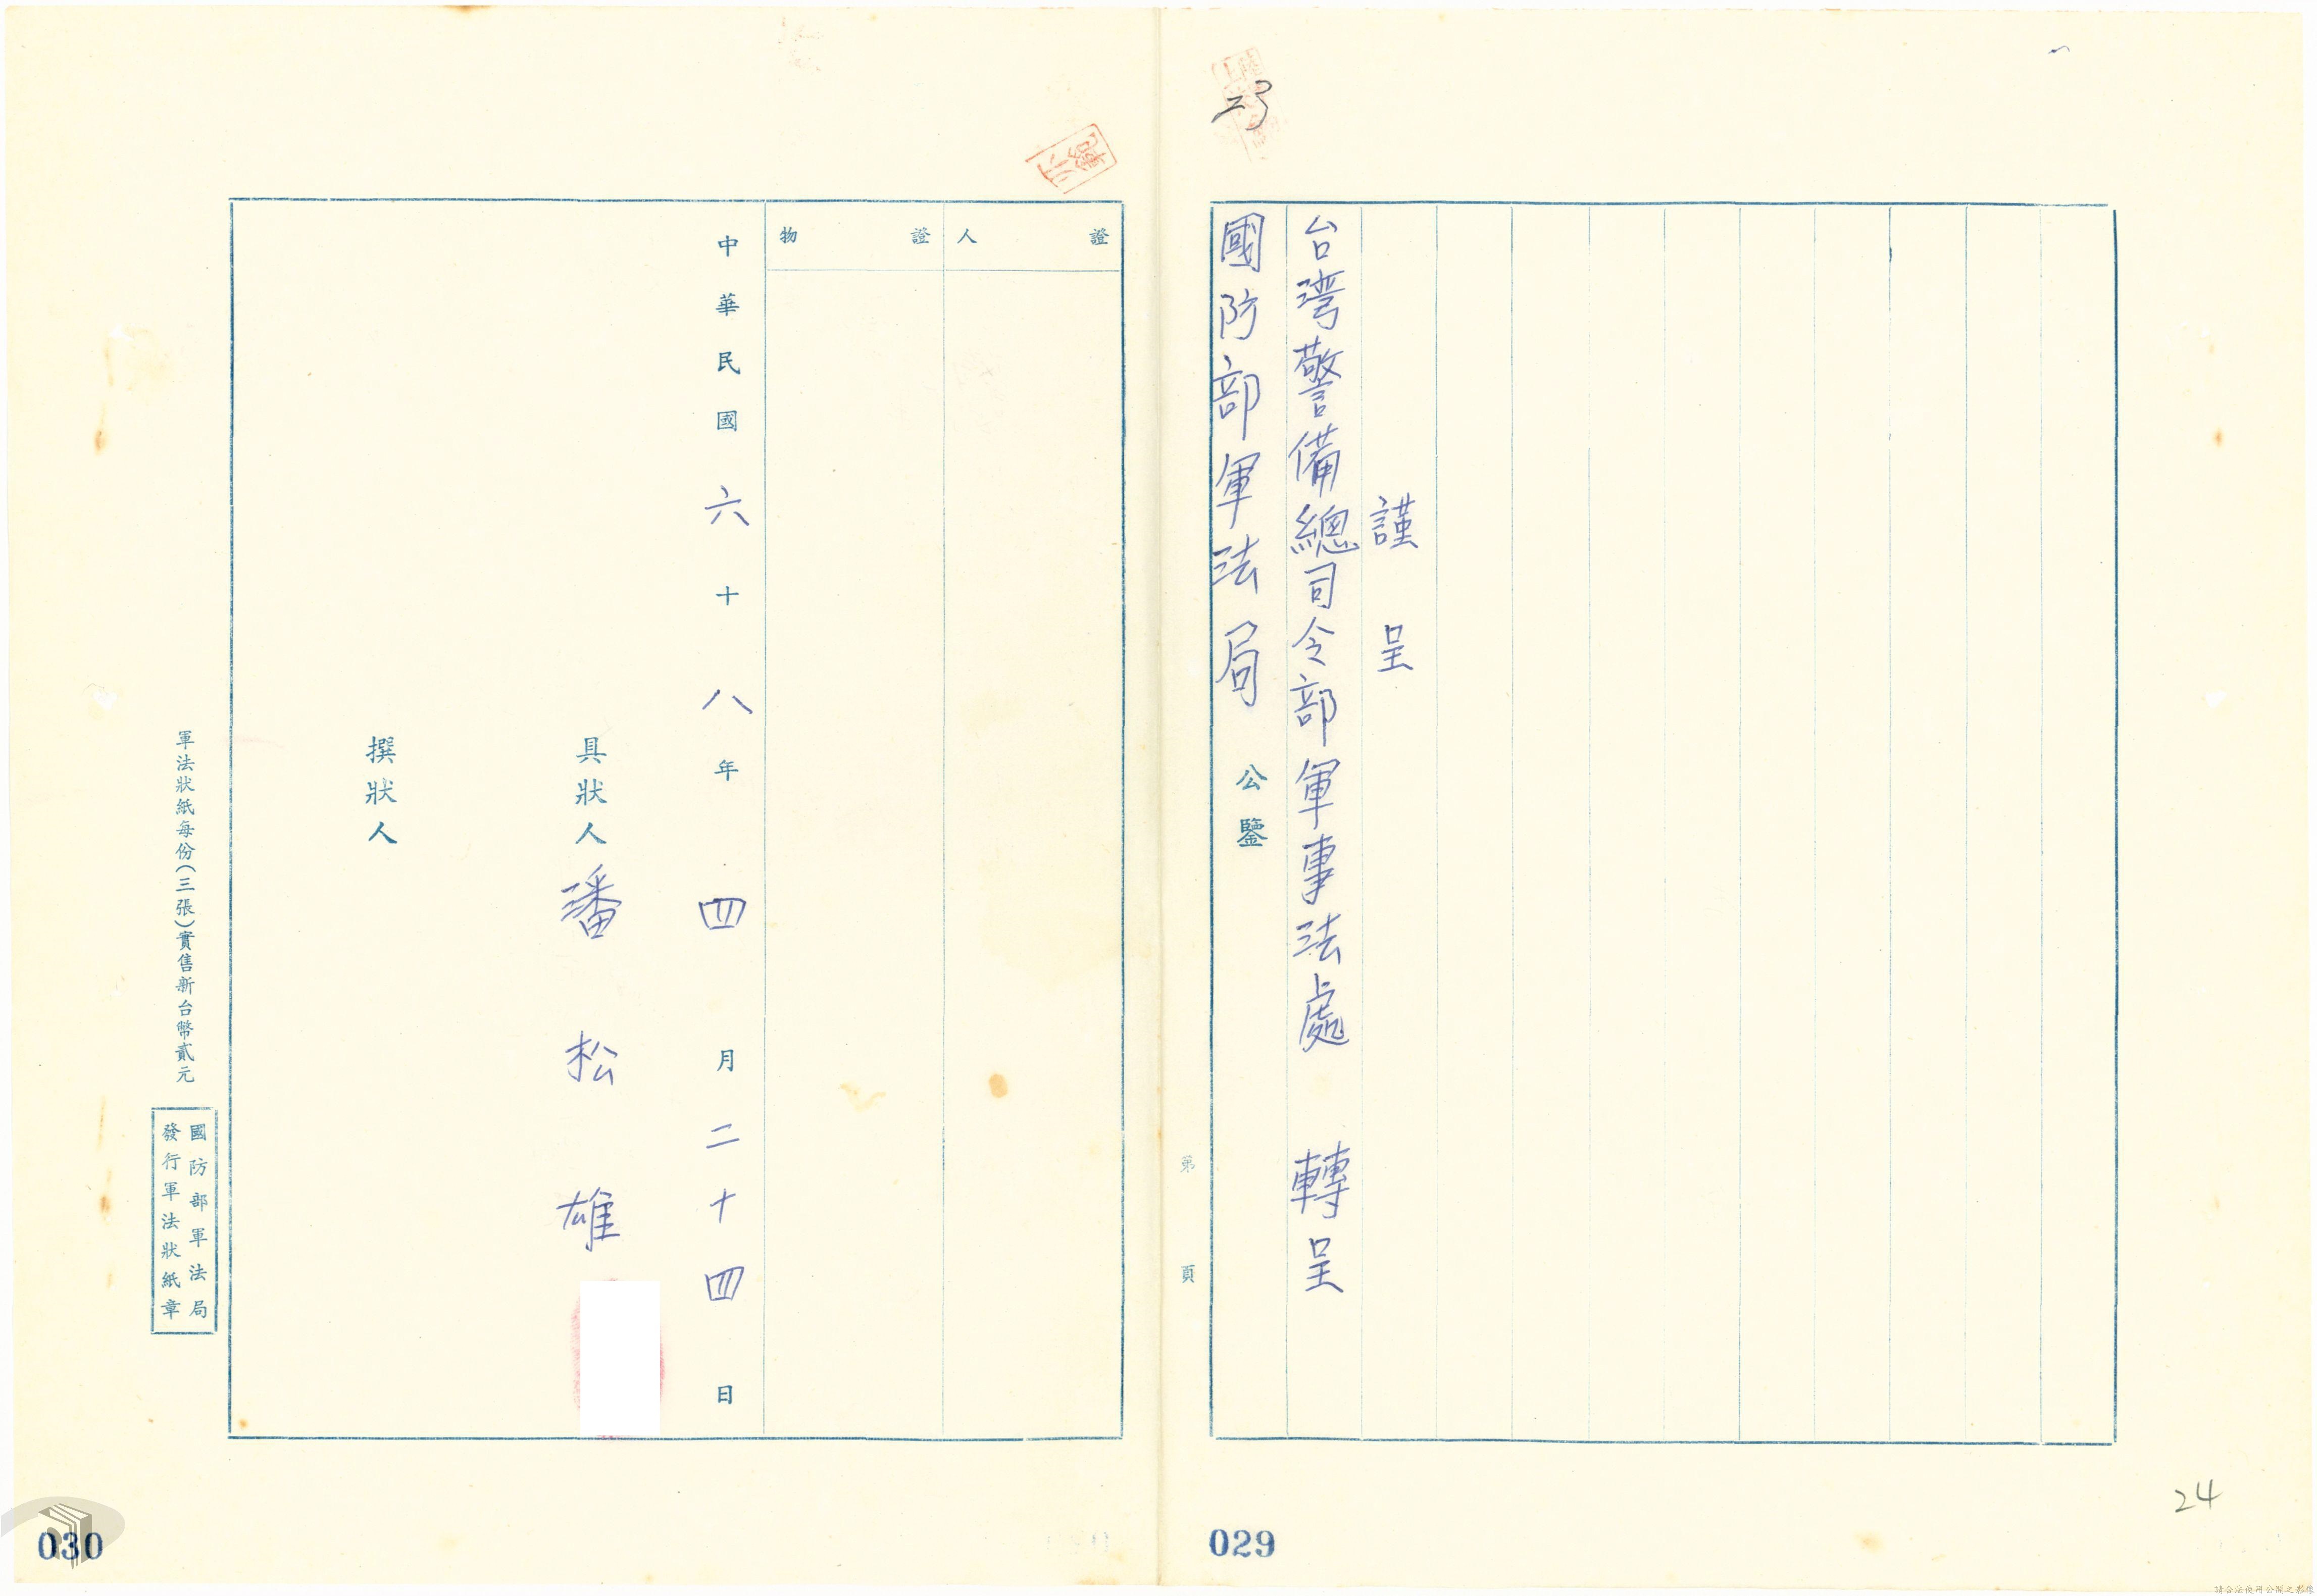 謹呈
台灣警備總司令部軍事法處 轉呈
國防部軍法局 公鑒
第 頁
23
24
029
證人
證物
中華民國六十八年四月二十四日
具狀人 潘松雄
撰狀人
軍法狀紙每份(三張)實售新台幣貳元
國防部軍法局
發行軍法狀紙章
030
請合法使用公開之影像